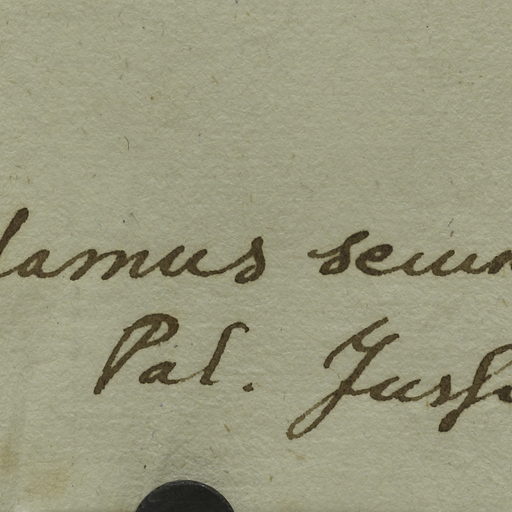 lamus seum
Pal. Jusf